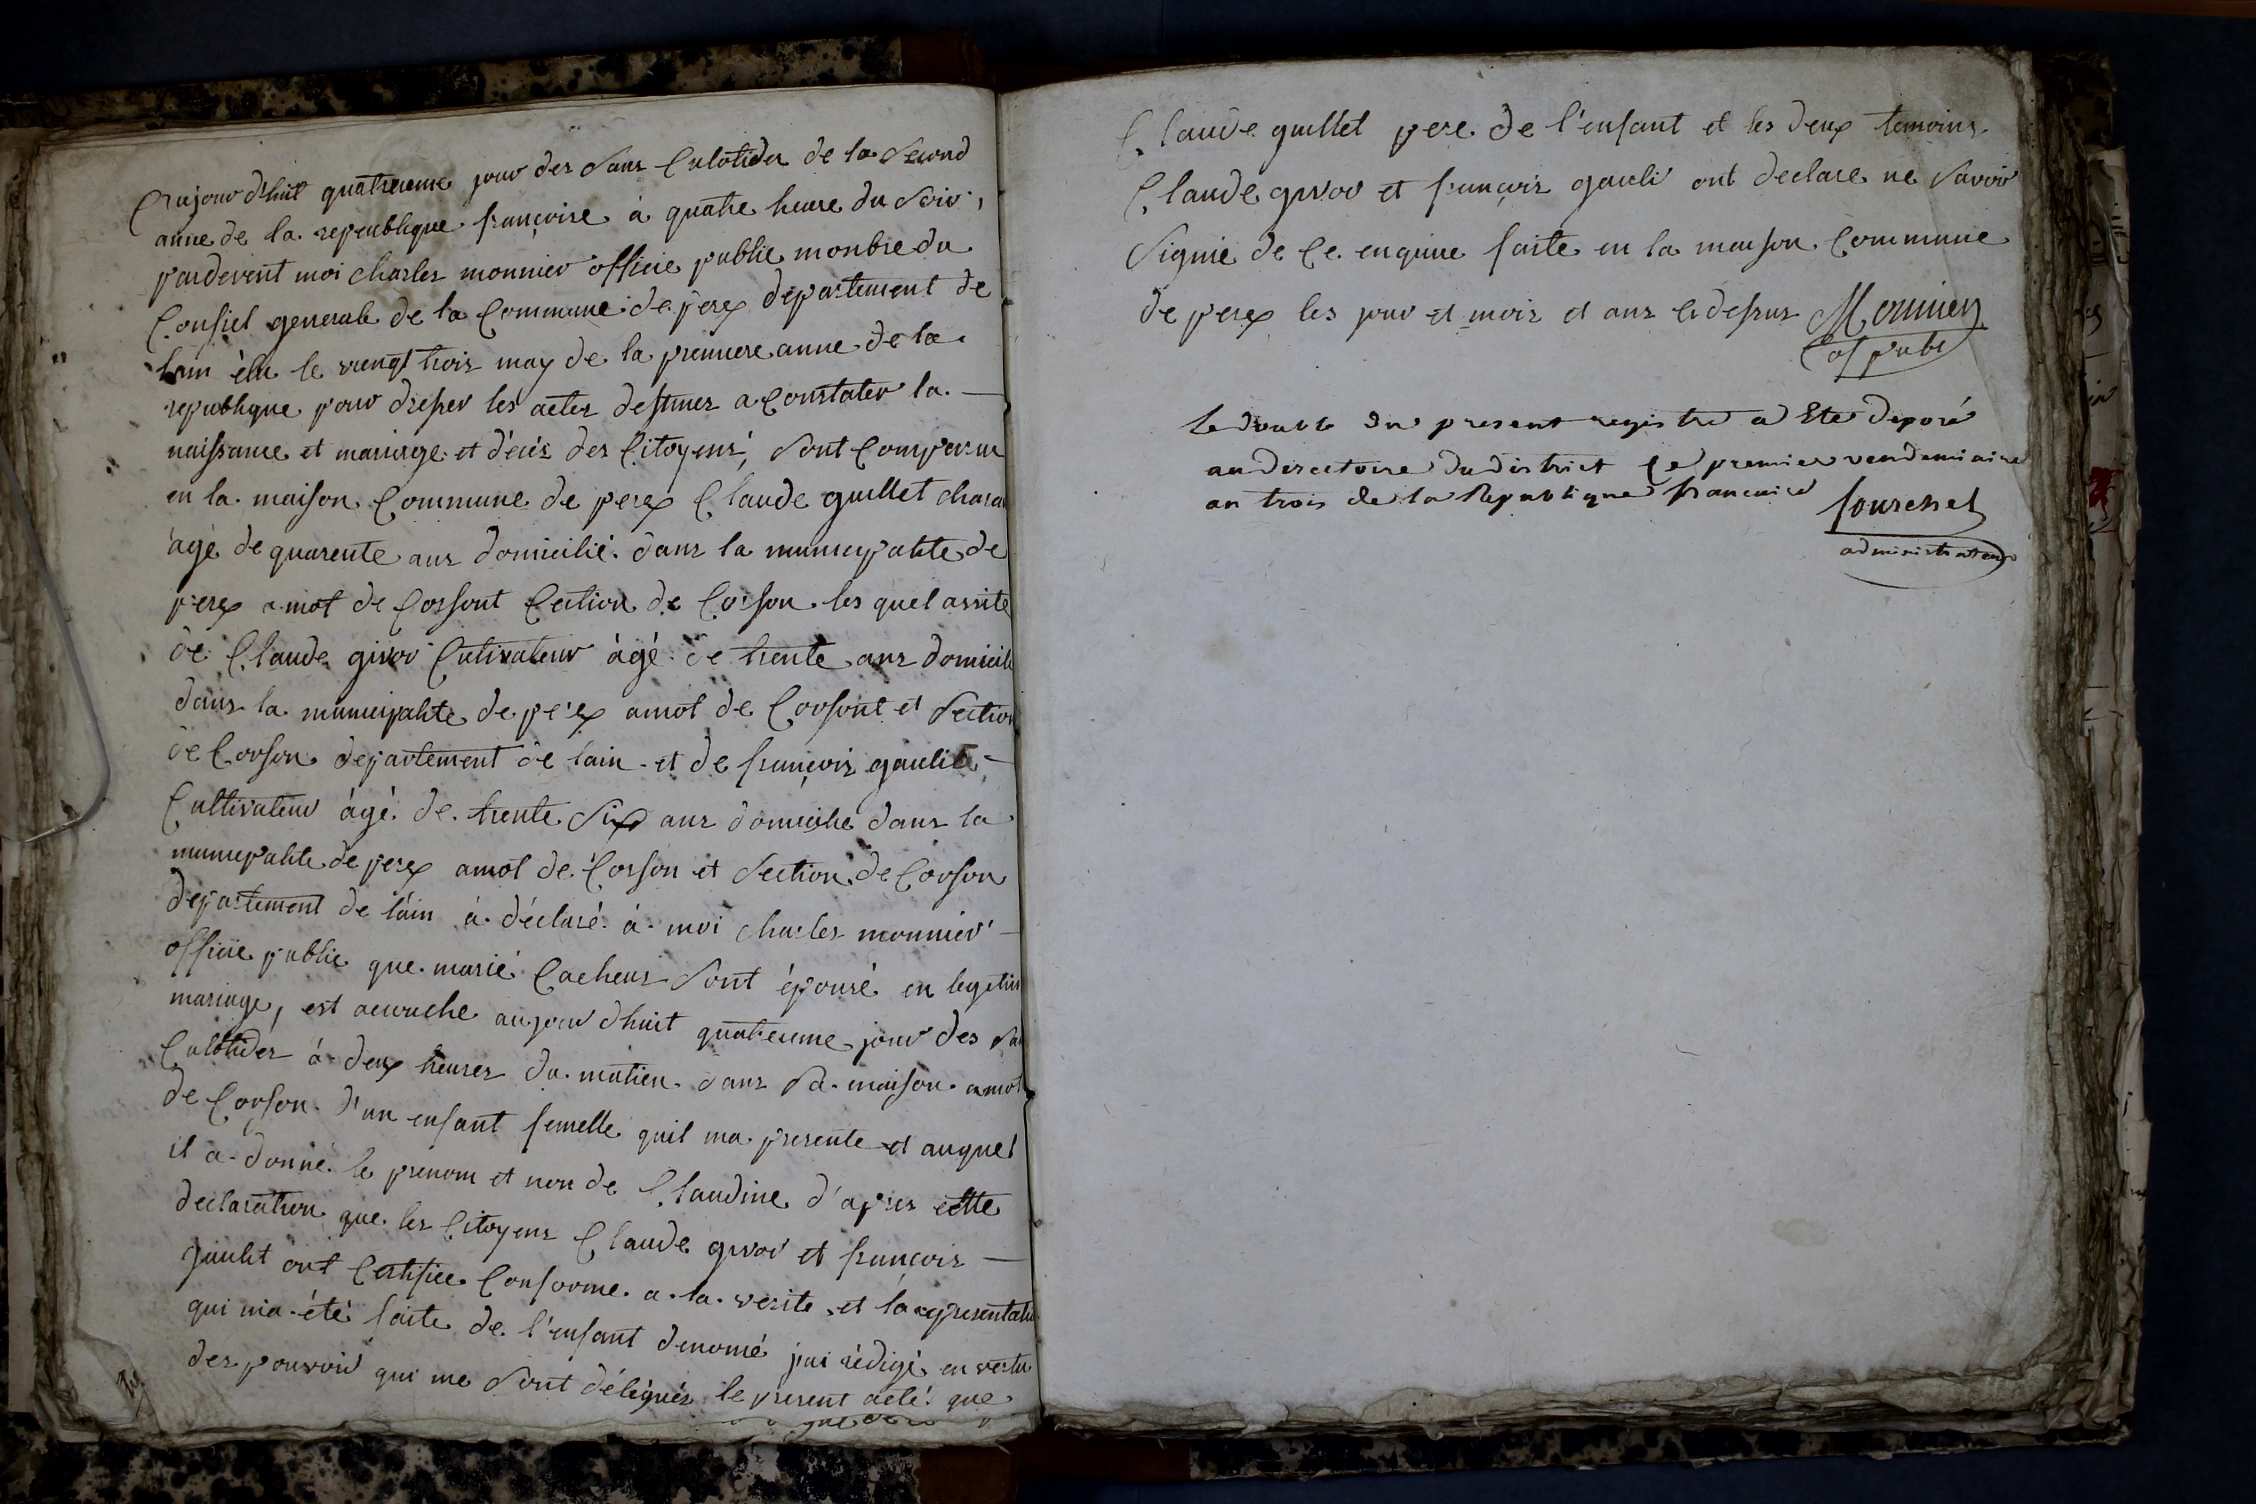 aujour d'huit quatrieme jour des sans Culotides de la second
anne de la republique françoise à quatre heure du soir,
pardevent moi charles monnier officie public monbre du
Consiel generale de la Commune de perex departement de
lain élu le viengt trois may de la premiere anne de la
republique pour dresser les actes destines a Constater la
naissance et mariage et décés des Citoyens, sont Comparue
en la maison Commune de perex Claude guillet
àgé de quarente ans domicilié dans la municipalite de
perex amot de Corsont Cection de Corson les quel assite
de Claude givor Cutivateur àgé de trente ans domicile
dans la municipalite de perex amot de Corsont et Section
de Corson departement de lain et de françois gaulie
Cultivateur àgé de trente Six ans domicilie dans la
municipalite de perex amot de Corson et Section de Corson
departement de làin à déclaré à moi charles monnier
officie public que marie Cacheux sont épousé en legitim
mariage, est acouche aujour dhuit quatrieme jour des sa
Culotides à deux heures du matien dans sa maison amot
de Corson d'un enfant femelle quil ma presente et auquel
il a donné le prenom et non de Claudine d'apres cette
declaration que les Citoyens Claude givor et françois
gaulit ont Certifiee Conforme a la verite et la representatio
qui ma été faite de l'enfant denomé jai rédigé en vertu
des pouvoir qui me sont délégués le present acte que
Claude guillet pere de l'enfant et les deux temoins
Claude givor et françois gauli ont declare ne savoir
signié de Ce enquire faite en la maison Commune
de perex les jour et mois et ans Ci dessus Monnier
of publ
le double du present registre a Ete deposé
au directoire du district Ce premier vendemiaire
an trois de la Republique francaise
administrateur